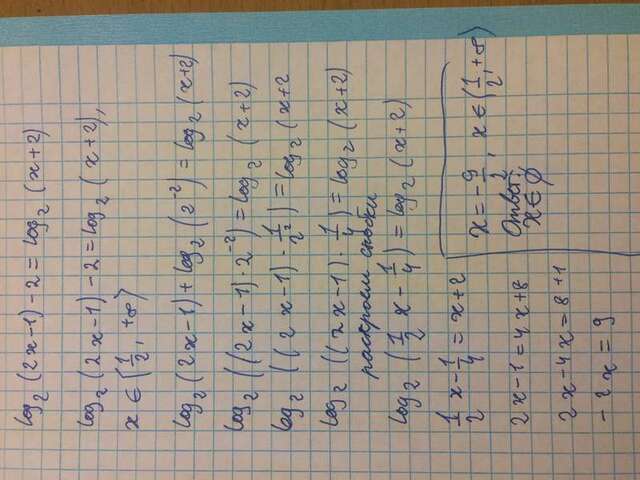 log₂ (2x-1) - 2 = log₂ (x+2)
log₂ (2x-1) - 2 = log₂ (x+2),
x ∈ (1/2, +∞)
log₂ (2x-1) + log₂ (2⁻²) = log₂ (x+2)
log₂ ((2x-1)·2⁻²) = log₂ (x+2)
log₂ ((2x-1)·1/2²) = log₂ (x+2
log₂ ((2x-1)·1/4) = log₂ (x+2)
раскроем скобки
log₂ (1/2 x - 1/4) = log₂ (x+2)
1/2 x - 1/4 = x+2
2x-1 = 4x+8
2x-4x = 8+1
-2x = 9
x = -9/2, x ∈ (1/2, +∞)
Ответ:
x ∈ ∅